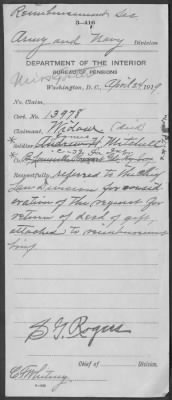 Reimbursement Sec
3-416
Army and Navy Division
DEPARTMENT OF THE INTERIOR
BUREAU OF PENSIONS
Washington, D. C., April 24, 1919
No Claim,
Cert. No. 13978
Claimant, Widow (dead)
Soldier, Andrew J. Mitchell
Respectfully referred to the Chief
Law Division for consid
eration of the request for
return of deed of gift,
attached to reimbursement
S. G. Rogers
Chief of Division.